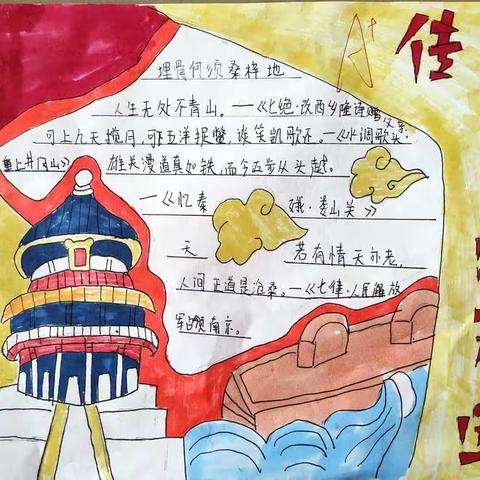 A+
传
埋骨何须桑梓地
人生无处不青山。——《七绝·改西乡隆盛赠父亲》
可上九天揽月,可下五洋捉鳖,谈笑凯歌还。——《水调歌头·
重上井冈山》 雄关漫道真如铁,而今迈步从头越。
——《忆秦 娥·娄山关》
天 若有情天亦老,
人间正道是沧桑。——《七律·人民解放
军占领南京。